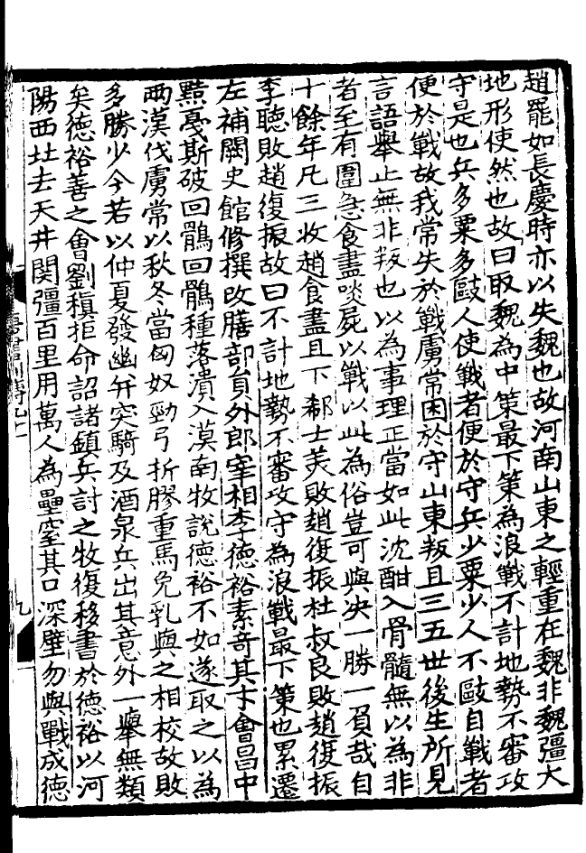 趙罷如長慶時亦以失魏也故河南山東之輕重在魏非魏彊大
地形使然也故曰取魏為中策最下策為浪戰不計地勢不審攻
守是也兵多粟多敺人使戰者便於守兵少粟少人不敺自戰者
便於戰故我常失於戰虜常困於守山東叛且三五世後生所見
言語舉止無非叛也以為事理正當如此沈酣入骨髓無以為非
者至有圍急食盡啖屍以戰以此為俗豈可與決一勝一負哉自
十餘年凡三收趙食盡且下郗士美敗趙復振杜叔良敗趙復振
李聽敗趙復振故曰不計地勢不審攻守為浪戰最下策也累遷
左補闕史館修撰改膳部員外郎宰相李德裕素奇其才會昌中
黠戛斯破回鶻回鶻種落潰入漠南牧說德裕不如遂取之以為
兩漢伐虜常以秋冬當匈奴勁弓折膠重馬免乳與之相校故敗
多勝少今若以仲夏發幽并突騎及酒泉兵出其意外一舉無類
矣德裕善之會劉稹拒命詔諸鎮兵討之牧復移書於德裕以河
陽西北去天井關彊百里用萬人為壘窒其口深壁勿與戰成德
九